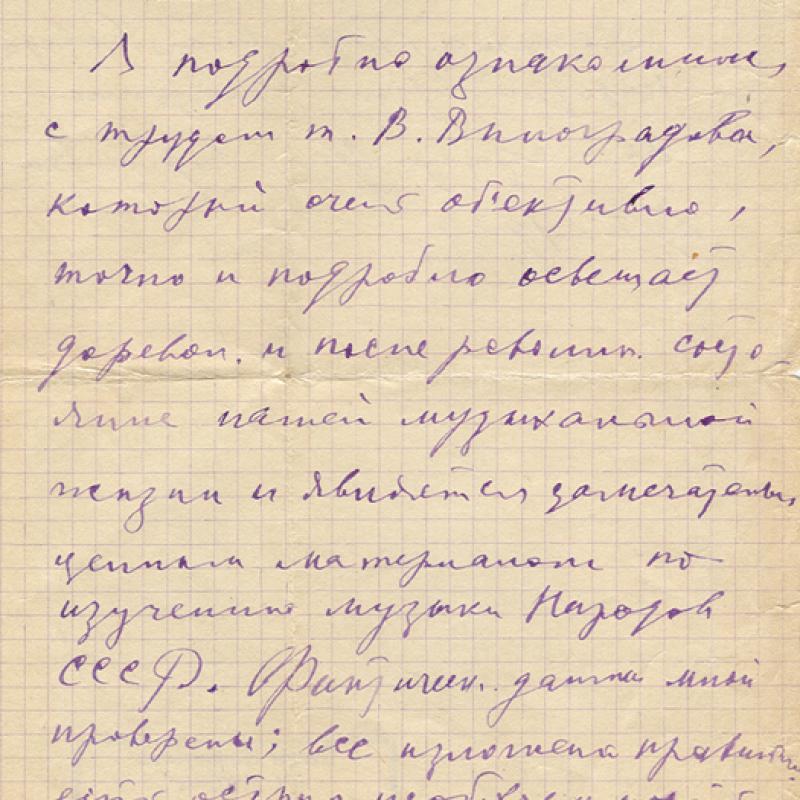 Я подробно ознакомился,
с трудом т. В. Виноградова,
который очень об'ективно,
точно и подробно освещает
доревол. и после революц. состо-
яние нашей музыкальной
жизни и является замечательн.
ценным материалом по
изучению музыки Народов
СССР. Фактическ. данные мной
проверены; все изложено правильн.
есть острая необходимость